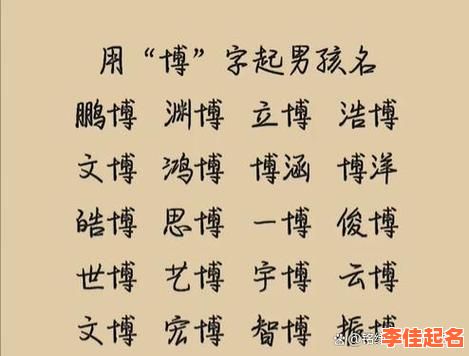 用“博”字起男孩名
鹏博 渊博 立博 浩博
文博 鸿博 博涵 博洋
皓博 思博 一博 俊博
世博 艺博 宇博 云博
文博 宏博 智博 振博
李佳起名